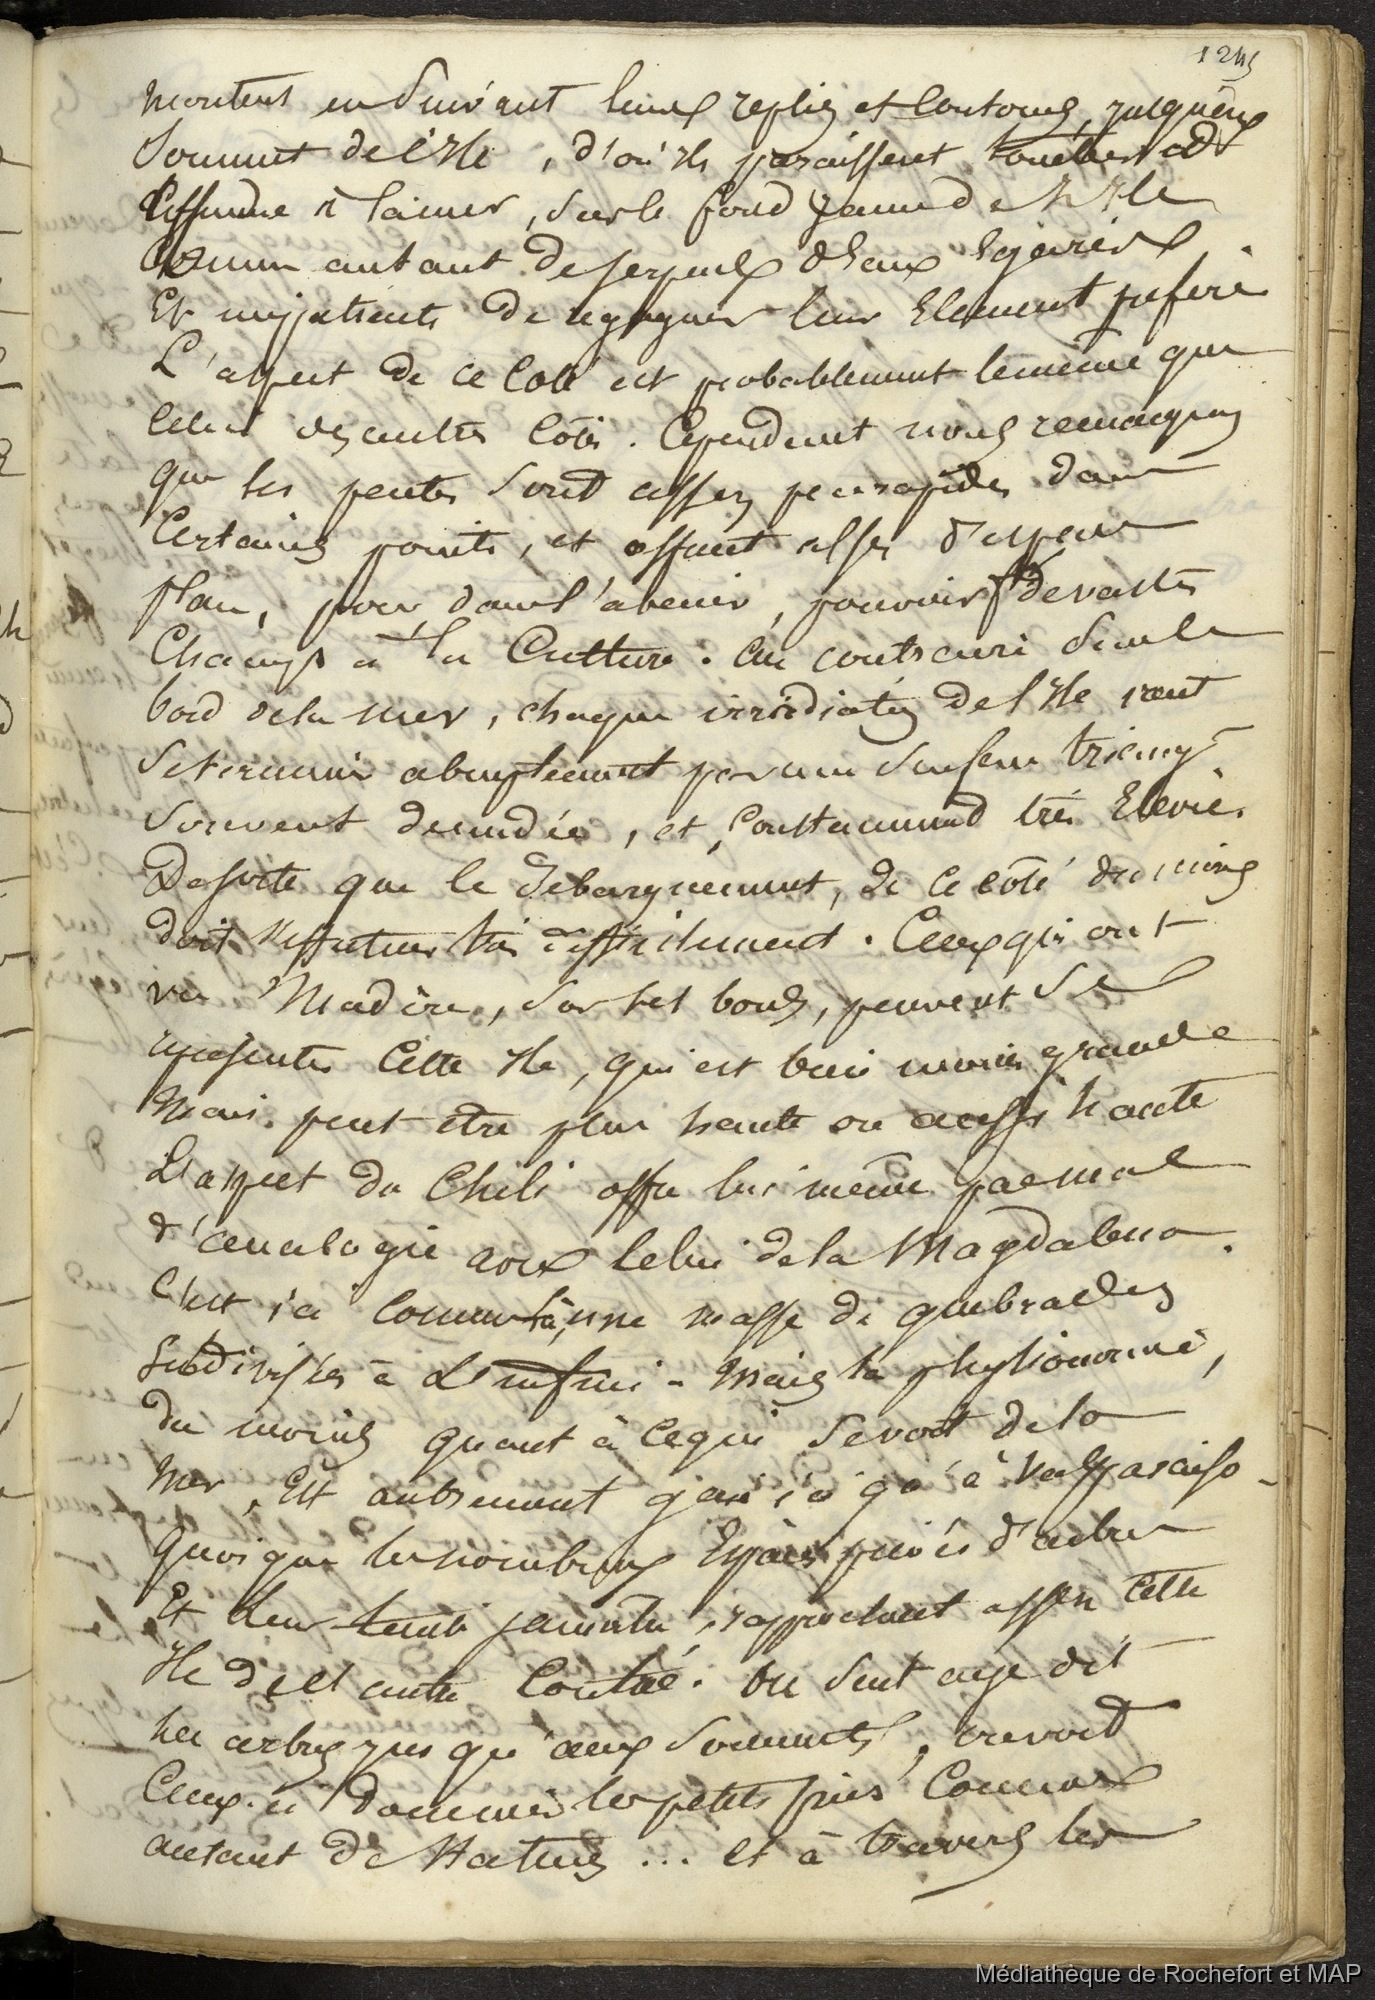 1245
montent en suivant leurs replis et contours, jusqu'aux
Sommet de l'Ile, d'où ils paraissent tomber et
à la mer, sur le fond jaune de l'Ile
Comme autant de serpens d'eaux égarés
Et impatients de regagner leur Elément préféré
L'aspect de ce Coté est probablement le même que
Celui des autres Côtés. Cependant nous remarquons
que les pentes sont assez peu rapides dans
Certains points, et offrent assez d'espace
plan, pour dans l'avenir, pouvoir de vastes
Champs à la Culture. Au contraire sur le
bord de la mer, chaque de l'Ile vont
se terminer abruptement par une surface
Souvent dénudée, et Constamment très Elevée.
De sorte que le débarquement, de ce côté du moins
doit s'effectuer très difficilement. Ceux qui ont
vu Madère, sur ses bords, peuvent se
représenter Cette Ile, qui est bien moins grande
Mais peut être plus haute ou aussi haute
L'aspect du Chili offre lui même pas mal
d'analogie avec Celui de la Magdalena.
C'est ici comme là, une masse de quebrades
Subdivisées à L'infini - Mais la physionomie,
du moins quant à Ce qui se voit de la
Mer, Est autrement gaie ici qu'à Valparaiso -
Quoique les nombreux Espaces privés d'arbres
Et leur teinte jaunâtre, rapprochent assez Cette
Ile de l'autre Contrée. On sent ai-je dit
les arbres que qu'aux Sommets, on voit
Ceux-ci dominer les petits pics Comme
autant de Statues ... et à travers les
Médiathèque de Rochefort et MAP